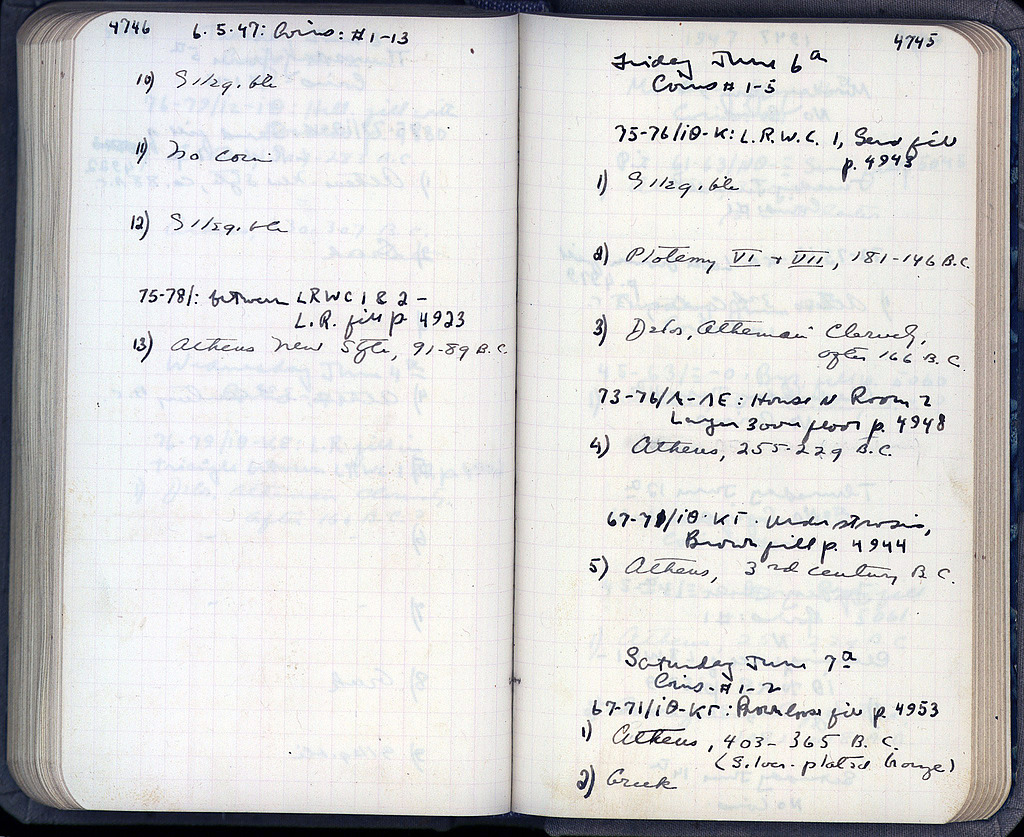 4746 6.5.47: Coins: #1-13
10) Illegible
11) No coin
12) Illegible
75-78/: between LRWC 1 & 2 -
L.R. fill p. 4923
13) Athens New Style, 91-89 B.C.
4745
Friday June 6ª
Coins # 1-5
75-76/ΙΘ-Κ: L.R.W.C. 1, fill
p. 4943
1) Illegible
2) Ptolemy VI + VII, 181-146 B.C.
3) Delos, Athenian Cleruch,
after 166 B.C.
73-76/Λ-ΛΕ: House N Room 2
Layer 3 over floor p. 4948
4) Athens, 255-229 B.C.
67-71/ΙΘ-ΚΓ.
Brown fill p. 4944
5) Athens, 3rd century B.C.
Saturday June 7ª
Coins #1-2
67-71/ΙΘ-ΚΓ: Brown loose fill p. 4953
1) Athens, 403-365 B.C.
(Silver-plated bronze)
2) Greek